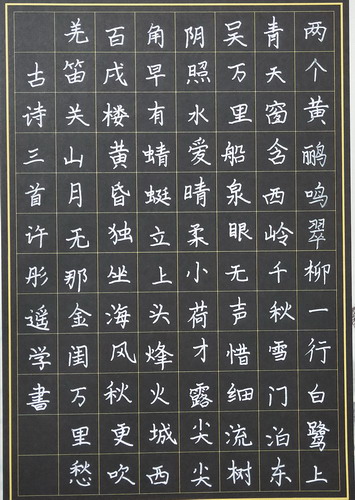 两个黄鹂鸣翠柳一行白鹭上
青天窗含西岭千秋雪门泊东
吴万里船泉眼无声惜细流树
阴照水爱晴柔小荷才露尖尖
角早有蜻蜓立上头烽火城西
百戍楼黄昏独坐海风秋更吹
羌笛关山月无那金闺万里愁
古诗三首许彤遥学書